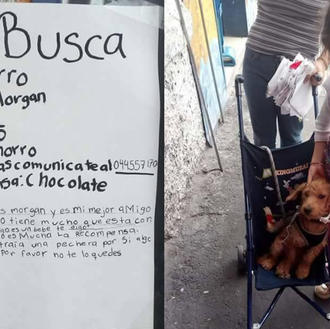 Busca
rro
Morgan
5
horro
as comunicate al 0445557170
sa: Chocolate
s morgan y es mi mejor aMigo
o tiene mucho que esta con
igo es un bebe te
o es Mucha La Recompensa.
traia una pechera por Si
por favor no te lo quedes
KINGMUSA